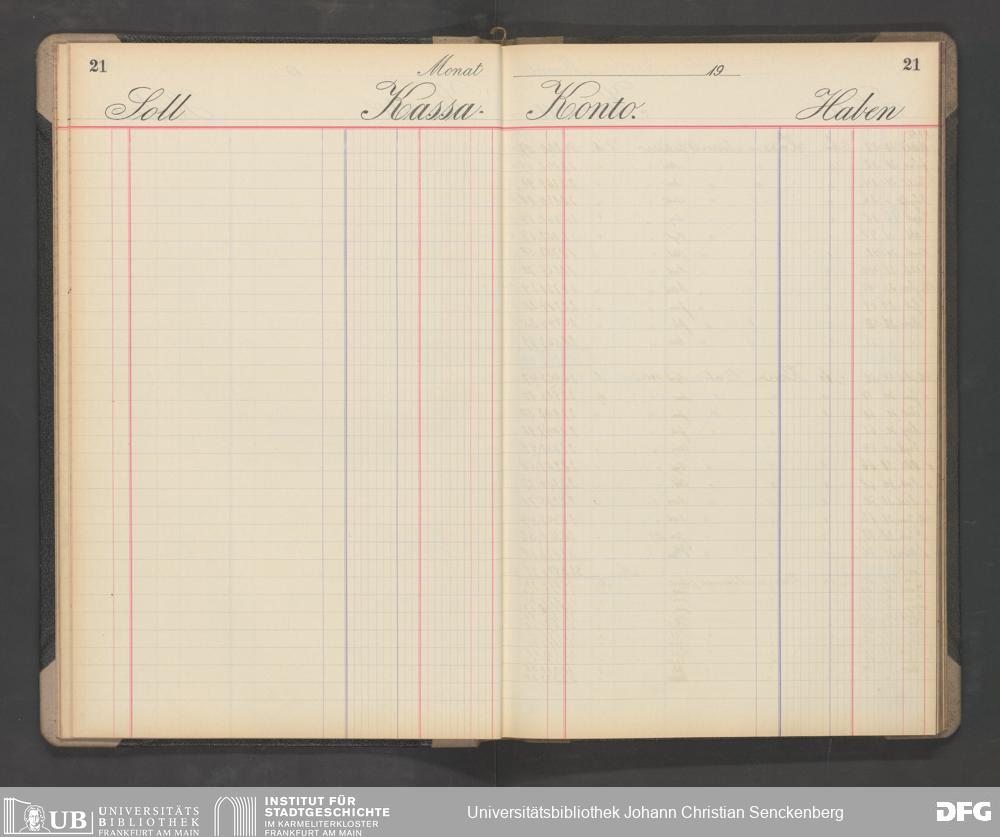 21
Monat
19
21
Soll
Kassa-
Konto.
Haben
UB
UNIVERSITÄTS
BIBLIOTHEK
FRANKFURT AM MAIN
INSTITUT FÜR
STADTGESCHICHTE
IM KARMELITERKLOSTER
FRANKFURT AM MAIN
Universitätsbibliothek Johann Christian Senckenberg
DFG